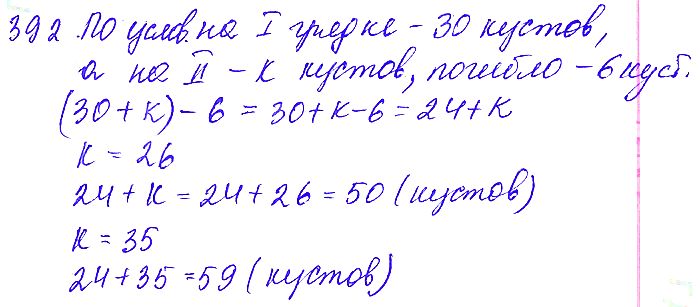 392. По услов. на I грядке - 30 кустов,
а на II - К кустов, погибло - 6 куст.
(30+К)-6 = 30+К-6 = 24+К
К = 26
24+К = 24+26 = 50 (кустов)
К = 35
24+35 = 59 (кустов)